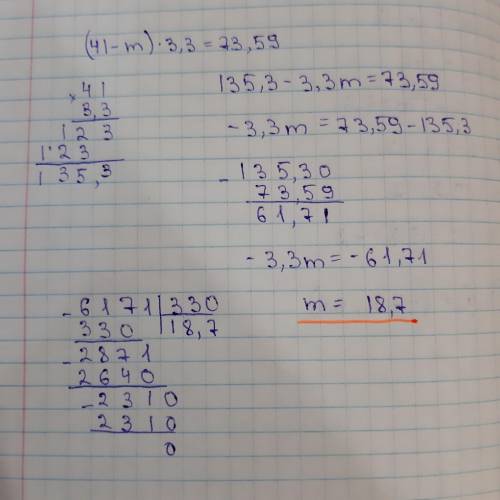 (41-m)·3,3=73,59
135,3-3,3m=73,59
-3,3m=73,59-135,3
× 41
3,3
1 2 3
1 2 3
1 3 5,3
- 135,30
73,59
61,71
-3,3m=-61,71
m= 18,7
- 6171 | 330
330 | 18,7
- 2871
2640
- 2310
2310
0